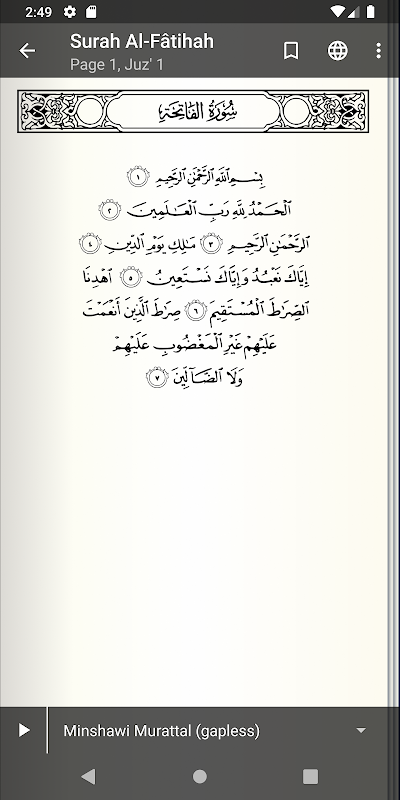 2:49
Surah Al-Fâtihah
Page 1, Juz' 1
سُورَةُ الفَاتِحَةِ
بِسْمِ ٱللَّهِ ٱلرَّحْمَٰنِ ٱلرَّحِيمِ ١
ٱلْحَمْدُ لِلَّهِ رَبِّ ٱلْعَٰلَمِينَ ٢
ٱلرَّحْمَٰنِ ٱلرَّحِيمِ ٣ مَٰلِكِ يَوْمِ ٱلدِّينِ ٤
إِيَّاكَ نَعْبُدُ وَإِيَّاكَ نَسْتَعِينُ ٥ ٱهْدِنَا
ٱلصِّرَٰطَ ٱلْمُسْتَقِيمَ ٦ صِرَٰطَ ٱلَّذِينَ أَنْعَمْتَ
عَلَيْهِمْ غَيْرِ ٱلْمَغْضُوبِ عَلَيْهِمْ
وَلَا ٱلضَّآلِّينَ ٧
Minshawi Murattal (gapless)